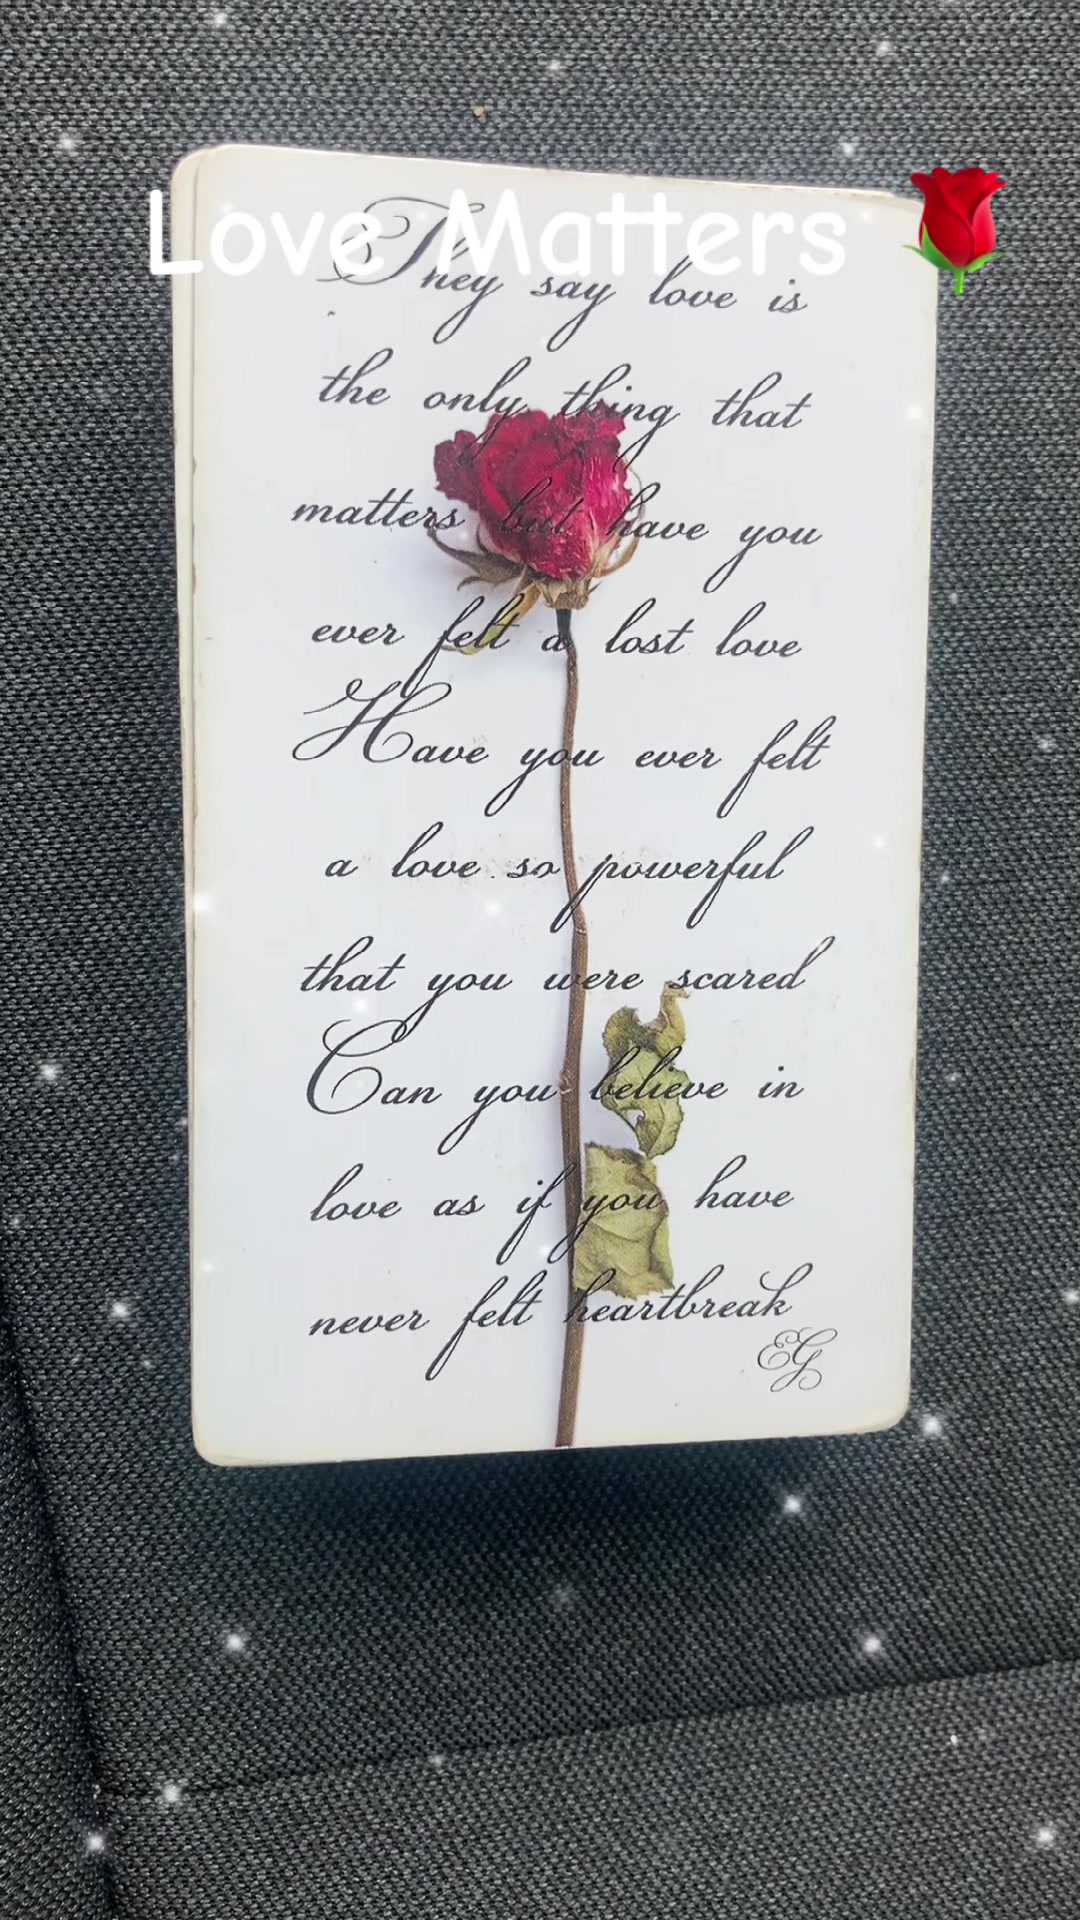 Love Matters 🌹
They say love is
the only thing that
matters but have you
ever felt a lost love
Have you ever felt
a love so powerful
that you were scared
Can you believe in
love as if you have
never felt heartbreak
EG